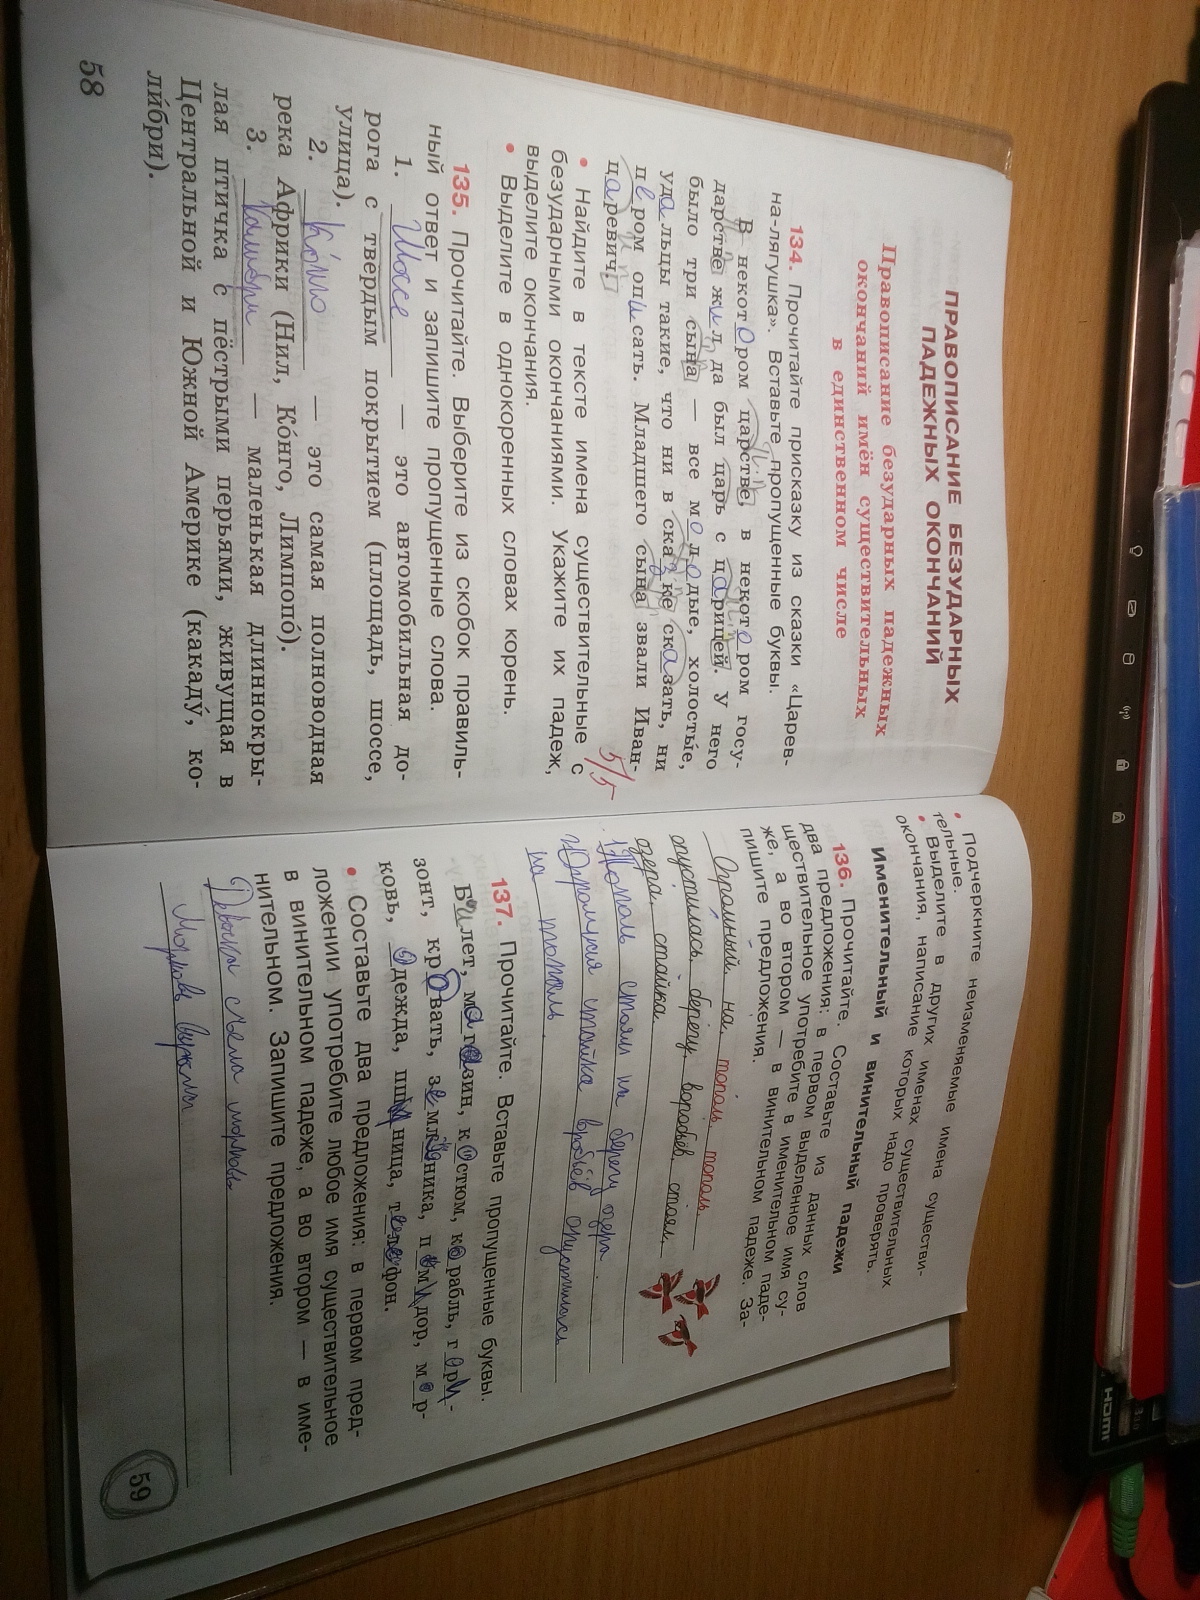 ПРАВОПИСАНИЕ БЕЗУДАРНЫХ
ПАДЕЖНЫХ ОКОНЧАНИЙ
Правописание безударных падежных
окончаний имён существительных
в единственном числе
134. Прочитайте присказку из сказки «Царев-
на-лягушка». Вставьте пропущенные буквы.
В некотором царстве, в некотором госу-
дарстве жил да был царь с царицей. У него
было три сына — все молодые, холостые,
удальцы такие, что ни в сказке сказать, ни
пером описать. Младшего сына звали Иван-
царевич.
• Найдите в тексте имена существительные с
безударными окончаниями. Укажите их падеж,
выделите окончания.
• Выделите в однокоренных словах корень.
5/5
135. Прочитайте. Выберите из скобок правиль-
ный ответ и запишите пропущенные слова.
1. Шоссе — это автомобильная до-
рога с твёрдым покрытием (площадь, шоссе,
улица).
2. Конго — это самая полноводная
река Африки (Нил, Ко́нго, Лимпопо́).
3. Колибри — маленькая длиннокры-
лая птичка с пёстрыми перьями, живущая в
Центральной и Южной Америке (какаду́, ко-
ли́бри).
58
• Подчеркните неизменяемые имена существи-
тельные.
• Выделите в других именах существительных
окончания, написание которых надо проверять.
Именительный и винительный падежи
136. Прочитайте. Составьте из данных слов
два предложения: в первом выделенное имя су-
ществительное употребите в именительном паде-
же, а во втором — в винительном падеже. За-
пишите предложения.
Огромный, на, тополь, тополь,
опустилась, берегу, воробьёв, стоял,
озера, стайка.
1)Тополь стоял на берегу озера.
2)Огромная стайка воробьёв опустилась
на тополь.
137. Прочитайте. Вставьте пропущенные буквы.
Билет, магазин, костюм, корабль, гори-
зонт, кровать, земляника, помидор, мор-
ковь, одежда, пшеница, телефон.
• Составьте два предложения: в первом пред-
ложении употребите любое имя существительное
в винительном падеже, а во втором — в име-
нительном. Запишите предложения.
съела морковь
Морковь
59
hdmi